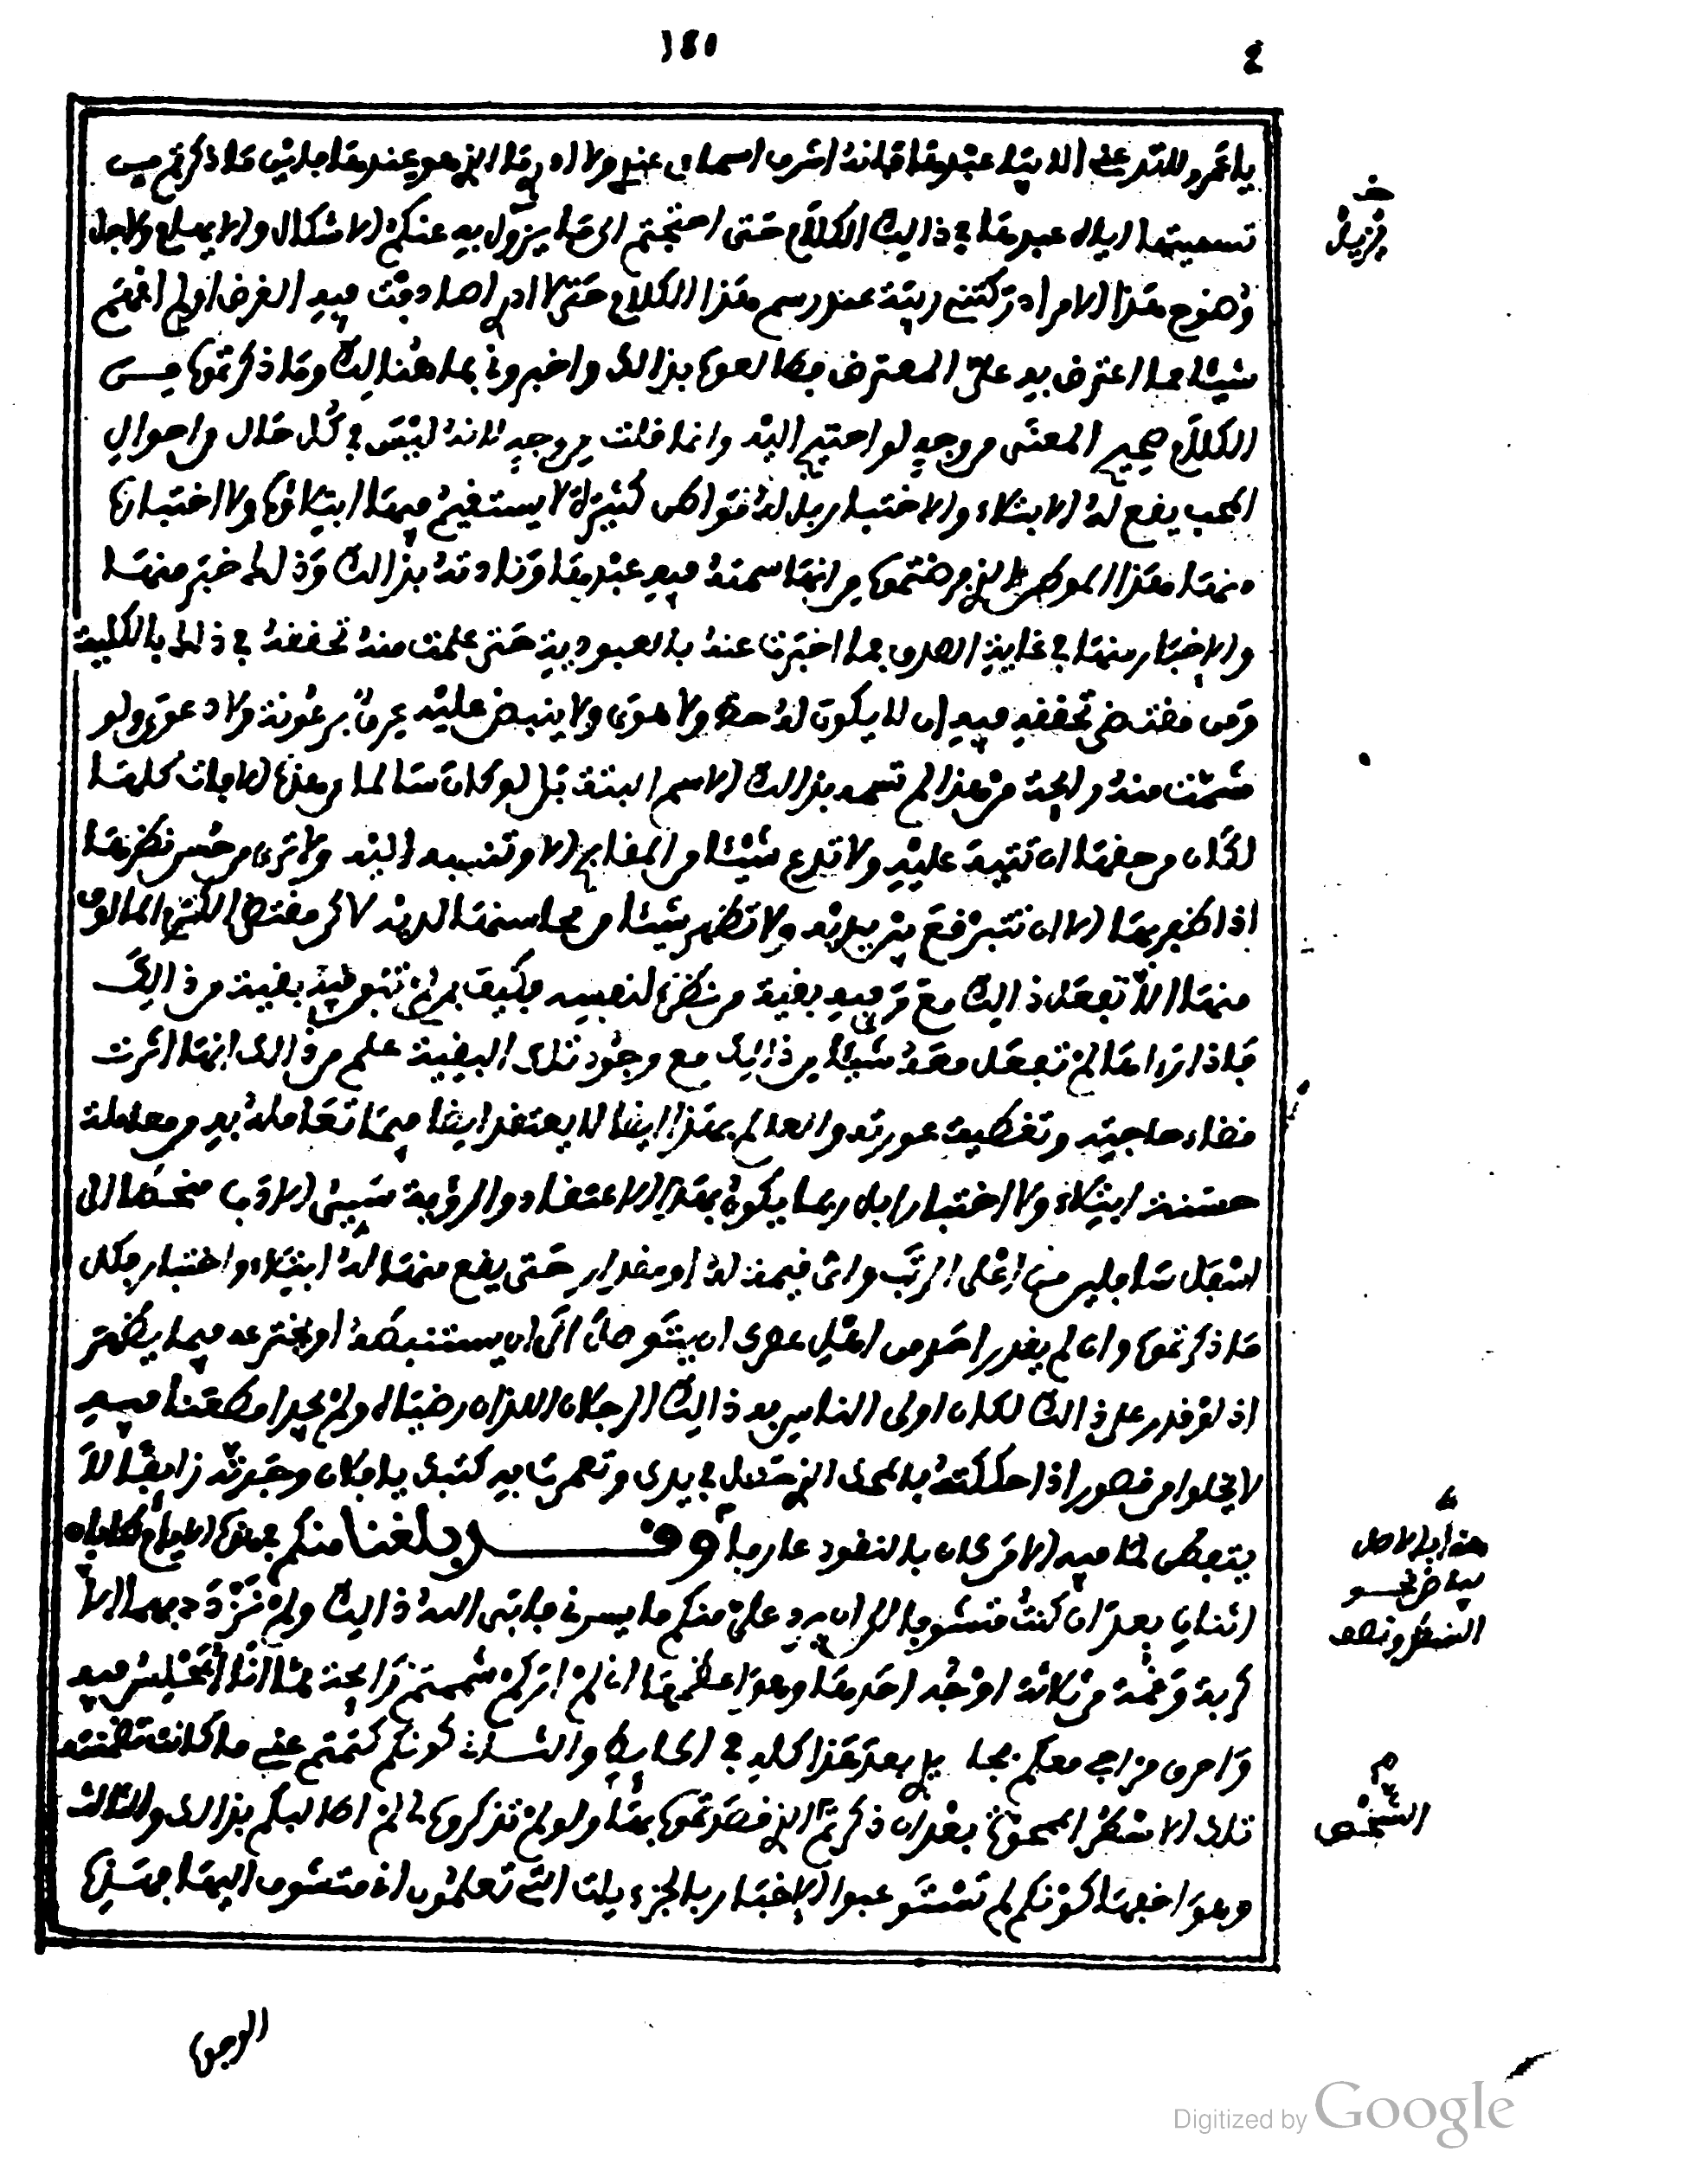 ١٤٥
٤
يا عمرو لا تدعني الا بيا عبدها فانه اشرف اسماى عندى ولا ادرى ما الذى هو عندها جار على ما ذكرتم من
تسميتها اياه عبدها في ذالك الكلام حتى احتجتم الى ما يزول به عنكم الاشكال والايهام ولاجل
وضوح هذا الامر ادركتنى ريبة عند رسم هذا الكلام حتى لا ادرى اصادفت فيه الغرض او لم افهم
شيئا مما اعترض به علي المعترض فطالعونا بذالك واخبرونا بما هنالك وما ذكرتموه من
الكلام صحيح المعنى من وجه لو احتيج اليه وانما قلت من وجه لانه ليس في كل حال واحوال
المحب يقع له الابتلاء والاختبار بل له مواطن كثيرة لا يستقيم فيها ابتلاؤه ولا اختباره
منها هذا الموطن الذى فرضتموه من انها سمته فيه عبدها ونادته بذالك وذلك خبر منها
والاخبار منها في غاية الصدق بما اخبرت عنه بالعبودية حتى علمت منه تحققه في ذلك بالكلية
ومن مقتضى تحققه فيه ان لا يكون له حظ ولا هوى ولا ينبض عليه عرق برعونة ولا دعوى ولو
شمت منه رايحة من هذا لم تسمه بذالك الاسم البتة بل لو كان سالما من هذه الافات كلها
لكان من حقها ان تتيه عليه ولا تدع شيئا من المقابح الا وتنسبه اليه ولا ترى من حسن نظرها
اذا ظفر بها الا ان تتبرقع بين يديه ولا تظهر شيئا من محاسنها لديه لاكن مقتضى الكرم المالوف
منها الا تفعل ذالك مع من فيه بقية من نظره لنفسه فكيف بمن لم تبق فيه بقية من ذالك
فاذا رءاها لم تفعل معه شيئا من ذالك مع وجود تلك البقية علم من ذالك انها اثرت
قضاء حاجته وتغطية عورته والعالم بهذا ايضا لا يعتقد ايضا فيما تعامله به من معاملة
حسنة ابتلاء ولا اختبارا بل ربما يكون بهذا الاعتقاد والرؤية سيئ الادب منحطا الى
اسفل سافلين من اعلى الرتب واى قيمة له او مقدار حتى يقع منها له ابتلاء واختبار فكل
ما ذكرتموه وان لم يقدر احد من اهل عصرى ان يتوصل الى ان يستنبطه او يخترعه فيما يظهر
اذ لو قدر على ذالك لكان اولى الناس به ذالك الرجلان اللذان رضياه ولم يجدا مطعنا فيه
لا يخلوا من قصور اذا حككته بالمحك الذى حصل في يدى وتعمرت به كتبى يا فلان وجدته زايفا لا
يتفطن لما فيه الا من كان بالنقود عارفا وقد بلغنا منكم في هذه الايام كتابان
اثنان بعد ان كنت متشوفا الى ان يرد علي منكم ما يسرنى فابى الله ذالك ولم نزدد بهما الا
كربة وغمة من ثلاثة اوجه احدها وهو اعظمها انى لم اركم شممتم رايحة مما انا متخبط فيه
واحرى مزاجى معكم بعد هذا كله في الحايط والثانى كونكم كتمتم عنى ما كانت تضمنته
تلك الاسطر الممحوة بعد ان ذكرتم الذى قصدتموه بها ولو لم تذكروه لى لم اطالبكم بذالك والثالث
وهو اخفها كونكم لم تستوعبوا الاخبار بالجزءيات التى تعلمون انى متشوف اليها فهذه
خ
فزيد
هنا بالاصل
بياض نحو
السطر ونصف
م
الشخص
الوجوه
Digitized by Google